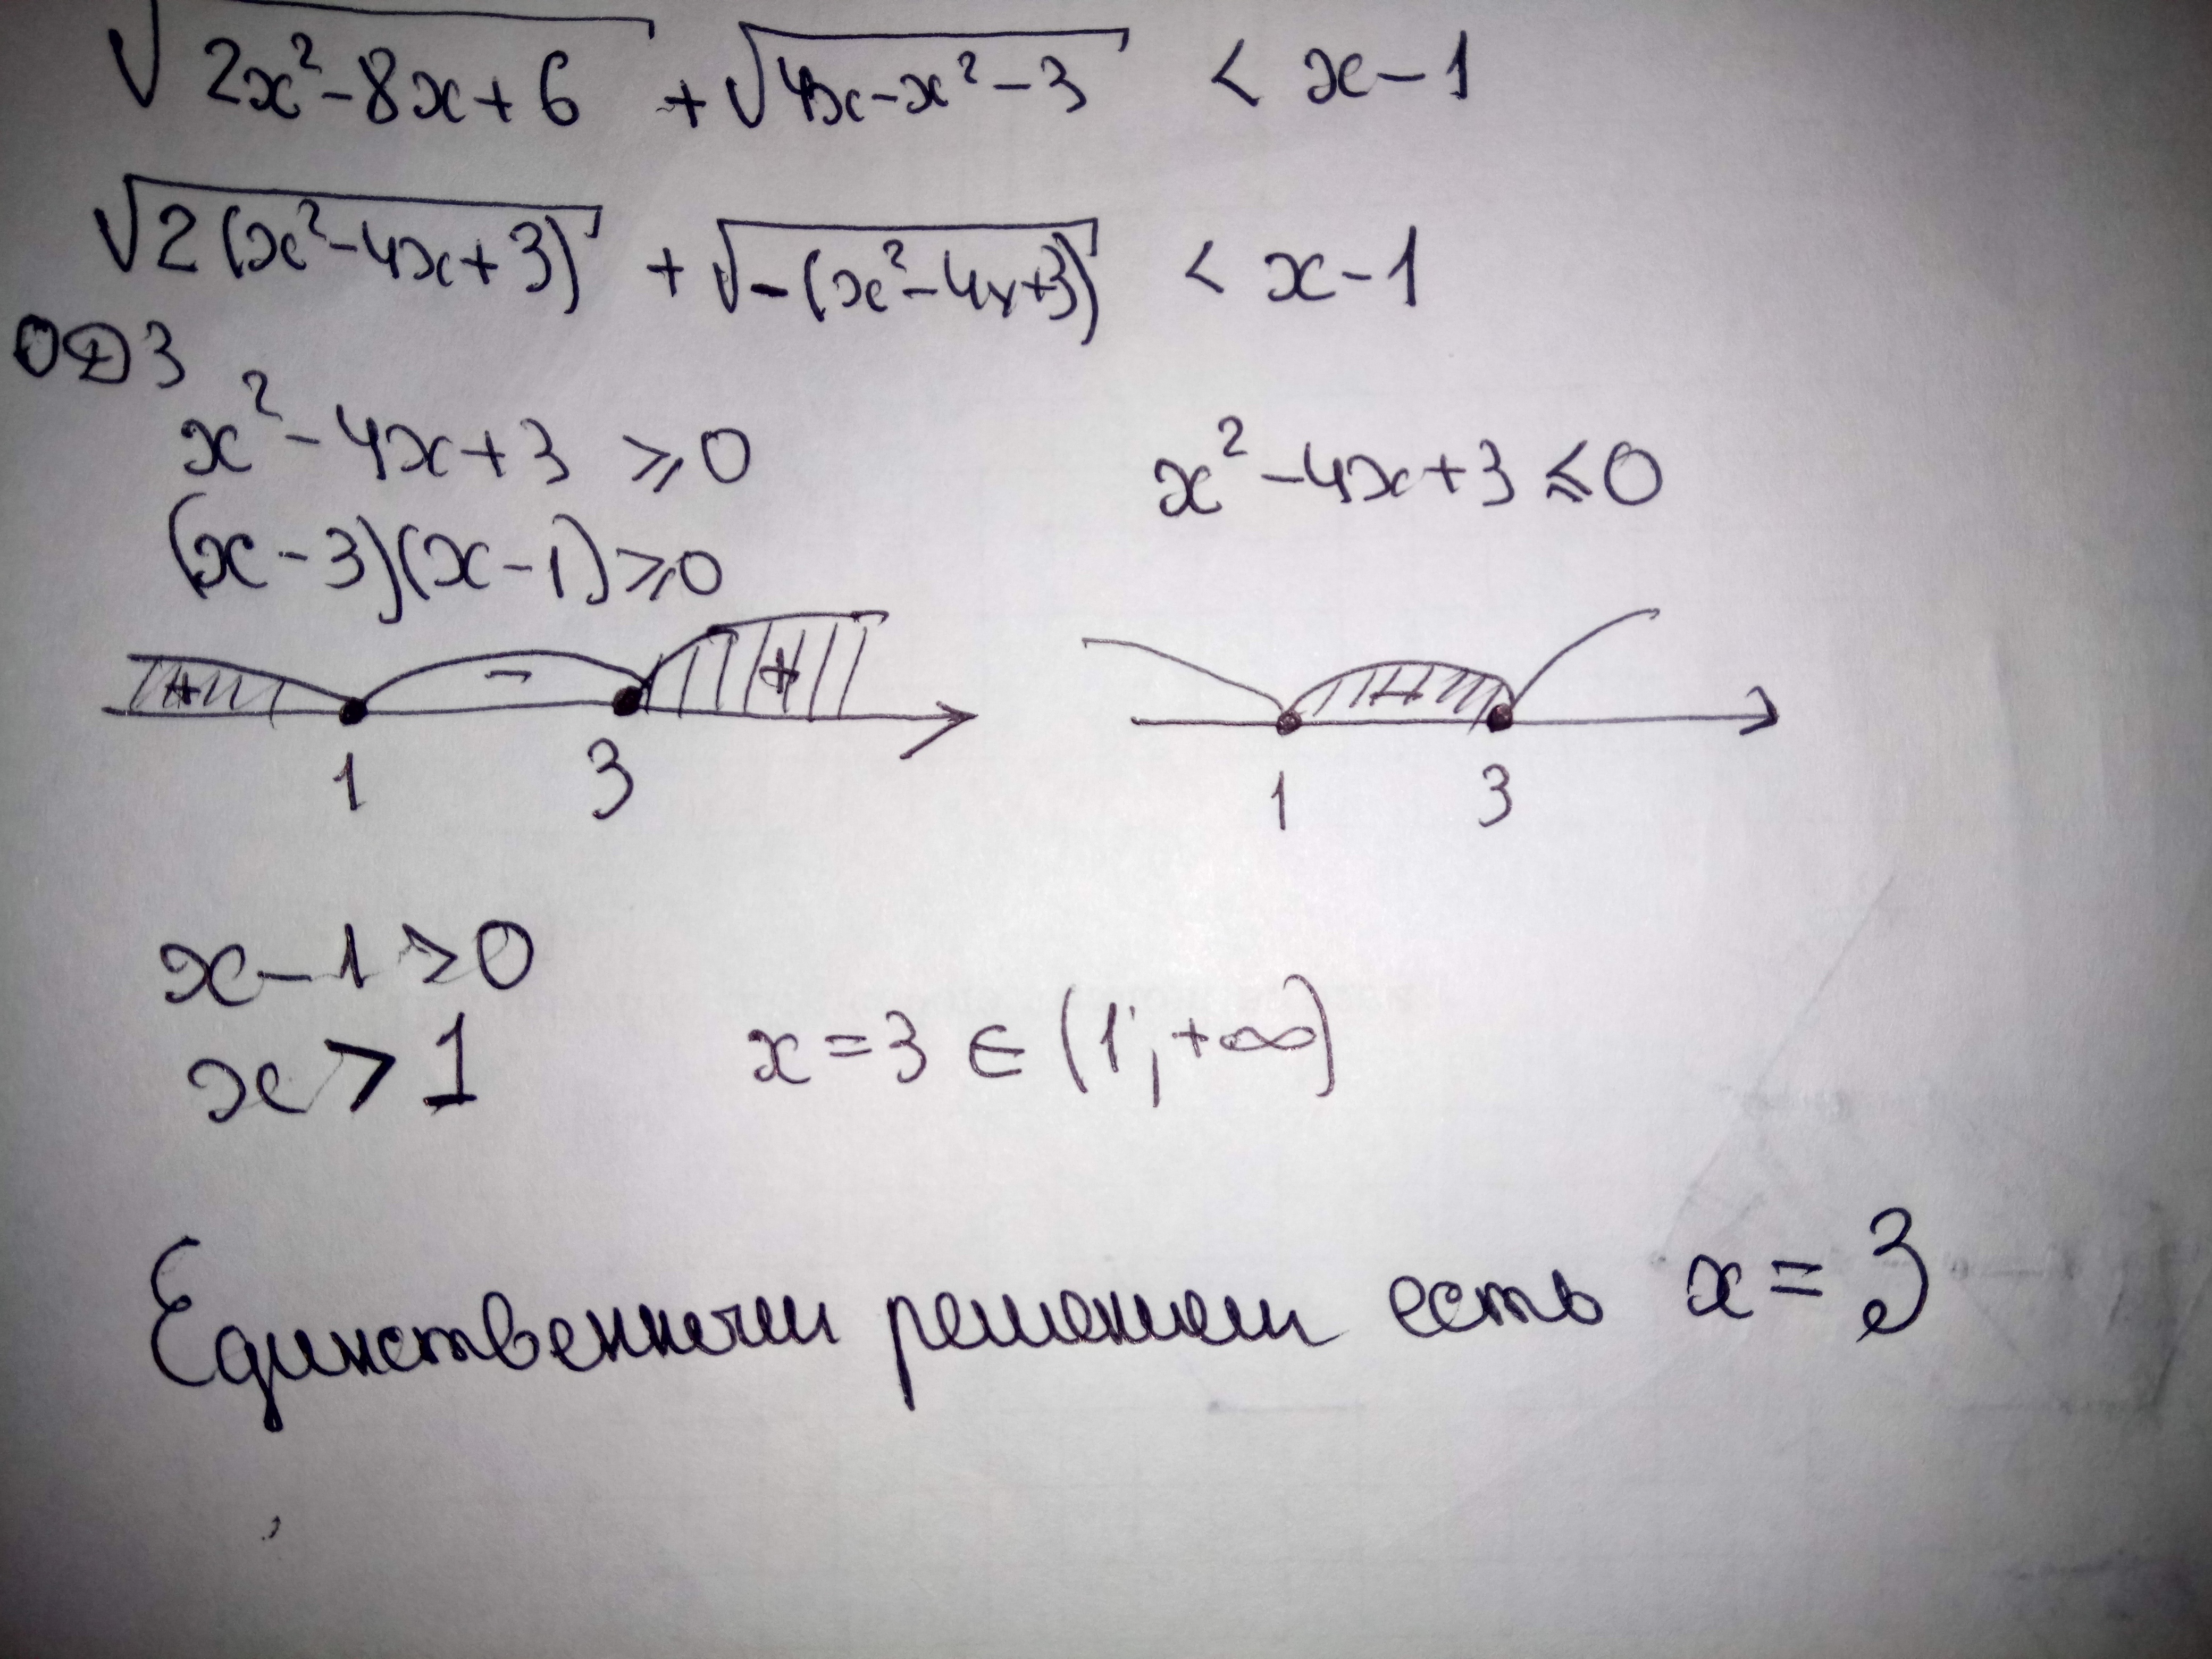 √(2x²-8x+6) + √(4x-x²-3) < x-1
√(2(x²-4x+3)) + √(-(x²-4x+3)) < x-1
ОДЗ
x²-4x+3 ⩾ 0 x²-4x+3 ⩽ 0
(x-3)(x-1) ⩾ 0
+ - + -
1 3 1 3
x-1 > 0
x > 1 x = 3 ∈ (1; +∞)
Единственным решением есть x = 3